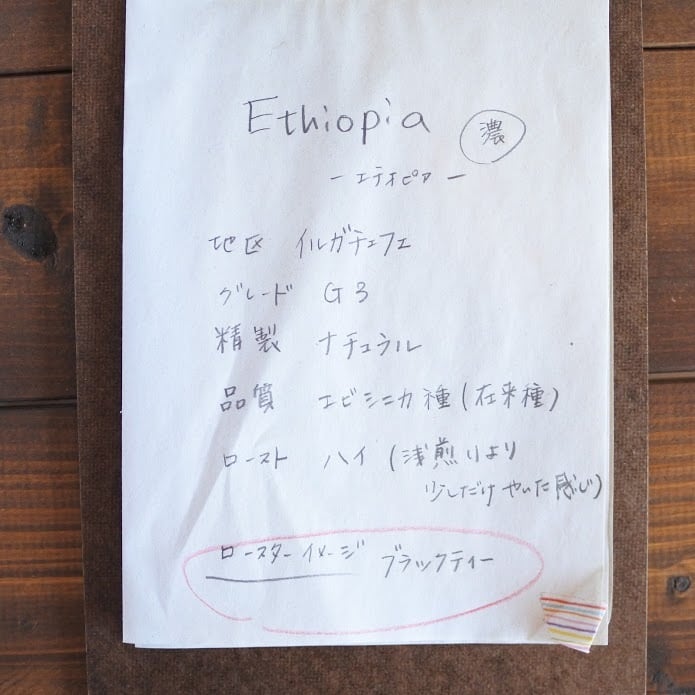 Ethiopia 濃
－エチオピア－
地区 イルガチェフェ
グレード G3
精製 ナチュラル
品質 エビシニカ種(在来種)
ロースト ハイ(浅煎りより
少しだけやいた感じ)
ロースターイメージ ブラックティー